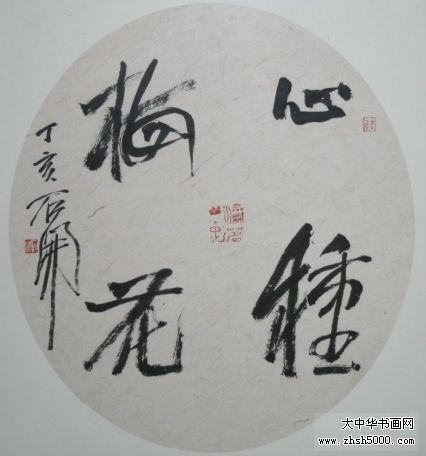 心種
梅花
丁亥石開
大中华书画网
www.zhsh5000.com